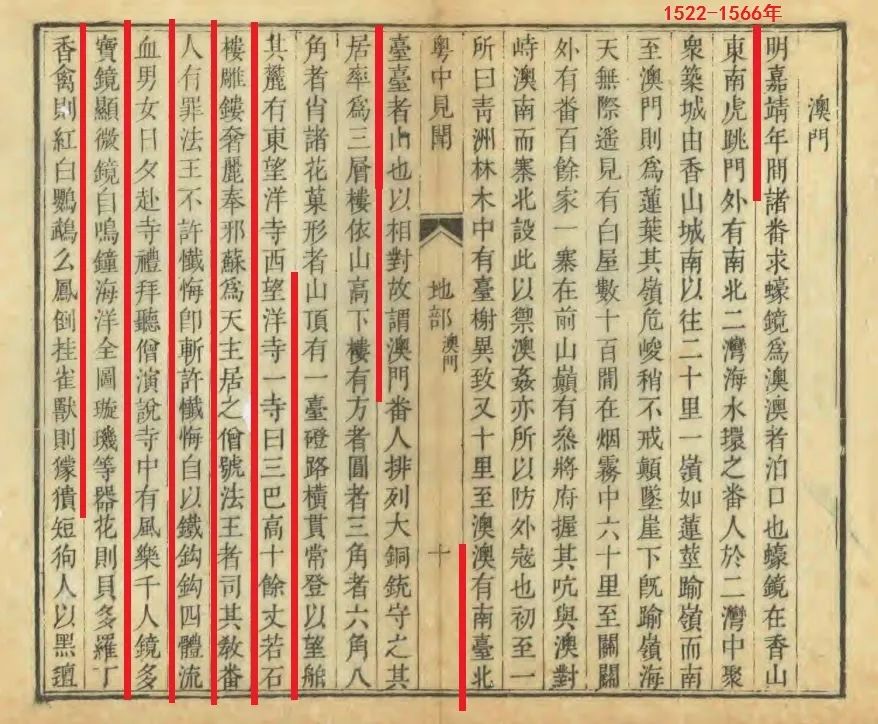 1522-1566年
澳門
明嘉靖年間諸番求蠔鏡爲澳澳者泊口也蠔鏡在香山
東南虎跳門外有南北二灣海水環之番人於二灣中聚
衆築城由香山城南以往二十里一嶺如蓮莖踰嶺而南
至澳門則爲蓮葉其嶺危峻稍不戒顛墜崖下旣踰嶺海
天無際遥見有白屋數十百間在烟霧中六十里至關關
外有番百餘家一寨在前山巔有叅將府握其吭與澳對
峙澳南而寨北設此以禦澳姦亦所以防外寇也初至一
所曰靑洲林木中有臺榭異致又十里至澳澳有南臺北
粵中見聞
地部
澳門
十
臺臺者山也以相對故謂澳門番人排列大銅銃守之其
居率爲三層樓依山高下樓有方者圓者三角者六角八
角者肖諸花菓形者山頂有一臺磴路橫貫常登以望舶
其麓有東望洋寺西望洋寺一寺曰三巴高十餘丈若石
樓雕鏤奢麗奉邪蘇爲天主居之僧號法王者司其敎番
人有罪法王不許懺悔卽斬許懺悔自以鐵鈎鈎四體流
血男女日夕赴寺禮拜聽僧演說寺中有風樂千人鏡多
寶鏡顯微鏡自鳴鐘海洋全圖璇璣等器花則貝多羅丁
香禽則紅白鸚鵡么鳳倒挂雀獸則獴獚短狗人以黑氊